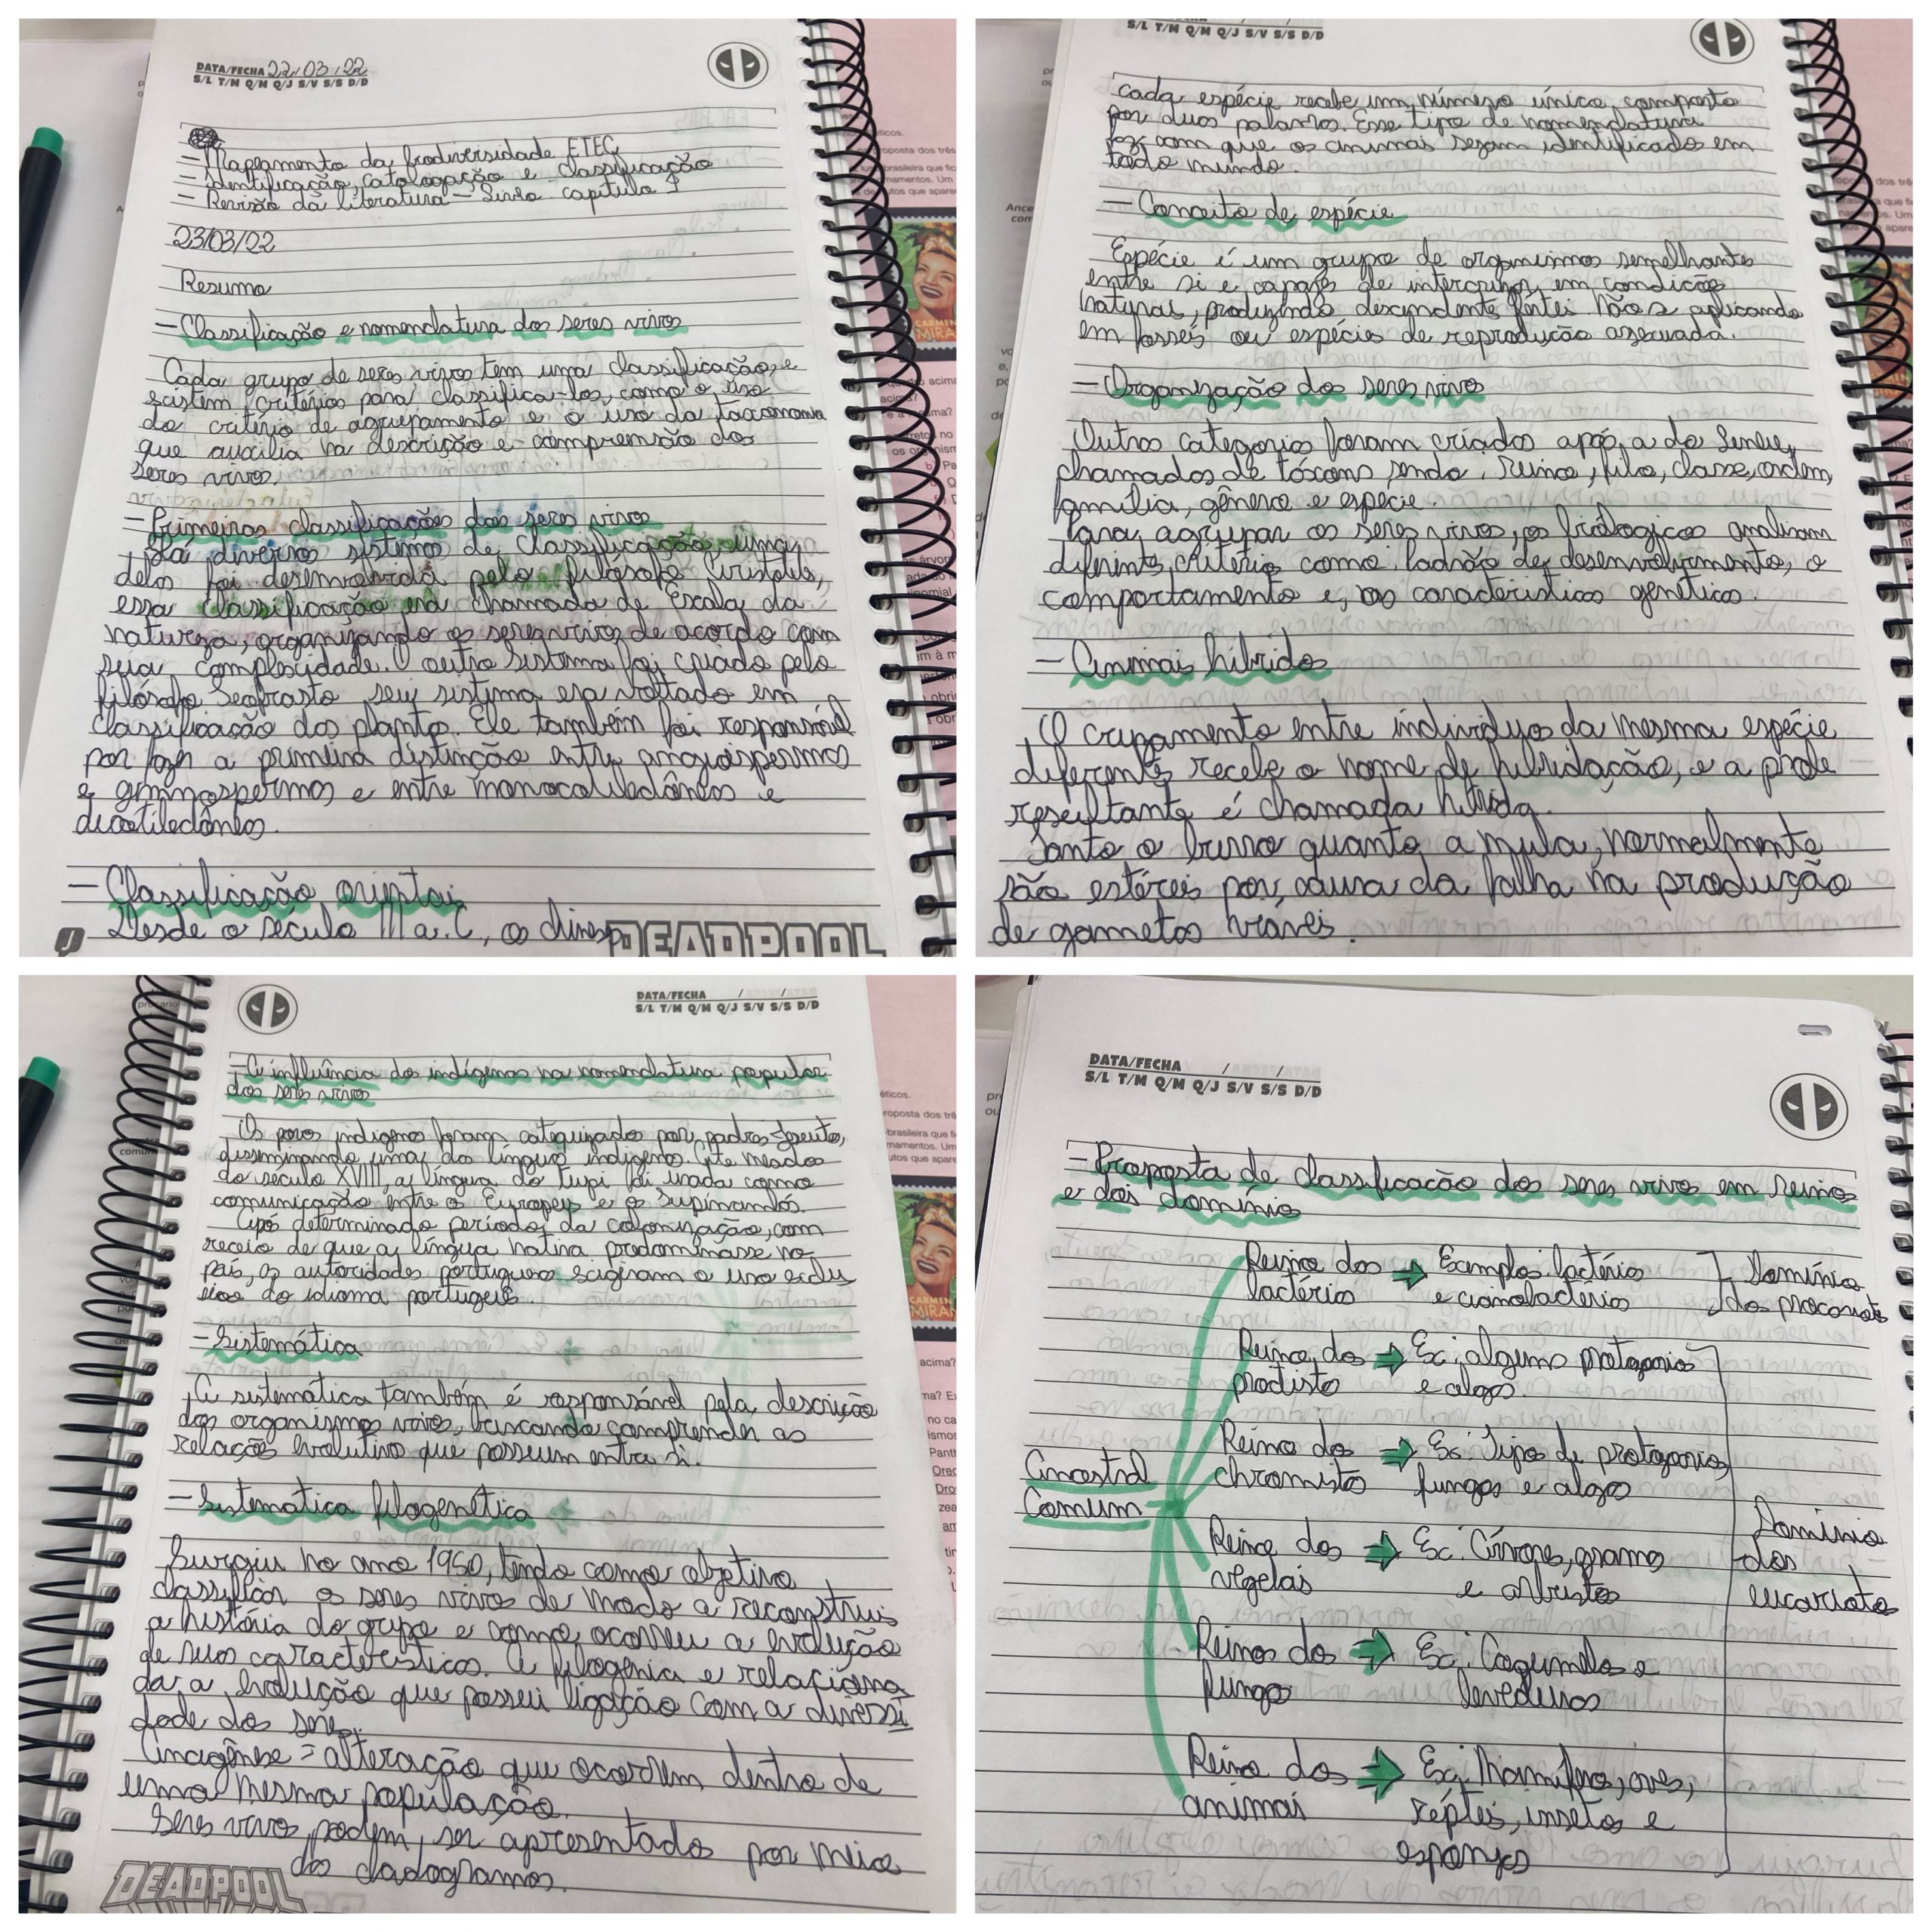 DATA/FECHA 22/03/22
S/L T/M Q/M Q/J S/V S/S D/D
- Mapeamento da biodiversidade ETEC
- Identificação, catologação e classificação
- Revisão da literatura - Linha capitulo 7
23/03/22
Resumo
- Classificação e nomenclatura dos seres vivos
Cada grupo de seres vivos tem uma classificação, e
existem critérios para classifica-los, como o uso
do critério de agrupamento e o uso da taxonomia
que auxilia na descrição e compreensão dos
seres vivos.
- Primeiras classificações dos seres vivos
Há diversos sistemas de classificação, uma
delas foi desenvolvida pelo filósofo Aristóteles,
essa classificação era chamada de Escala da
natureza, organizando os seres vivos de acordo com
sua complexidade. O outro sistema foi criado pelo
filósofo Teofrasto seu sistema era voltado em
classificação das plantas. Ele também foi responsável
por fazer a primeira distinção entre angiospermas
e gimnospermas e entre monocotiledôneas e
dicotiledôneas.
- Classificação oriental
Desde o século III a.C, os chineses
DEADPOOL
S/L T/M Q/M Q/J S/V S/S D/D
cada espécie recebe um número único, composto
por duas palavras. Esse tipo de nomenclatura
faz com que os animais sejam identificado em
todo mundo.
- Conceito de espécie
Espécie é um grupo de organismos semelhantes
entre si e capazes de intercruzar, em condições
naturais, produzindo descendente férteis. Não se aplicando
em fósseis ou espécies de reprodução assexuada.
- Organização dos seres vivos
Outras categorias foram criadas após a do Lineu,
chamados de táxons, sendo: Reino, filo, classe, ordem,
família, gênero e espécie.
Para agrupar os seres vivos, os biólogicos analisam
diferentes critérios como: Padrão de desenvolvimento, o
comportamento e, as características genéticas.
- Animais híbridos
O cruzamento entre indivíduos da mesma espécie
diferentes recebe o nome de hibridação, e a prole
resultante é chamada híbrida.
Tanto o burro quanto a mula, normalmente
são estéreis por causa da falha na produção
de gametas viáveis.
DATA/FECHA / /
S/L T/M Q/M Q/J S/V S/S D/D
- A influência dos indígenas na nomenclatura popular
dos seres vivos
Os povos indigenas foram catequizados por padres Jesuítas,
disseminando uma das línguas indígenas. Até meados
do século XVIII, a língua do tupi foi usada como
comunicação entre os Europeus e os Tupinambás.
Após determinado período da colonização, com
receio de que a língua nativa predominasse no
país, as autoridades portuguesas exigiram o uso exclu
sivo do idioma português.
- Sistemática
A sistemática também é responsável pela descrição
dos organismos vivos, buscando comprender as
relações evolutivas que possuem entre si.
- Sistematica filogenética
Surgiu no ano 1950, tendo como objetivo
classificar os seres vivos de modo a reconstruir
a história do grupo e como ocorreu a evolução
de suas características. A filogenia e relaciona
da a evolução que possui ligação com a diversi
dade dos seres.
Anagênese = alteração que ocorrem dentro de
uma mesma população.
Seres vivos podem ser apresentados por meio
dos cladogramas.
DEADPOOL
DATA/FECHA / /
S/L T/M Q/M Q/J S/V S/S D/D
- Proposta de classificação dos seres vivos em reinos
e dois domínio
Reino das bactérias
Exemplos: bactérias e cianobactérias
Domínio dos procarionte
Reino dos protista
Ex: alguns protozoarios e algas.
Reino dos chromista
Ex: Tipos de protozoarios, fungos e algas
Ancestral Comum
Reino dos vegetais
Ex: Árvores, gramas e arbustos
Domínio dos eucariotos
Reinos dos fungos
Ex: Cogumelos e leveduras
Reino dos animais
Ex: Mamíferos, aves, répteis, insetos e esponjas